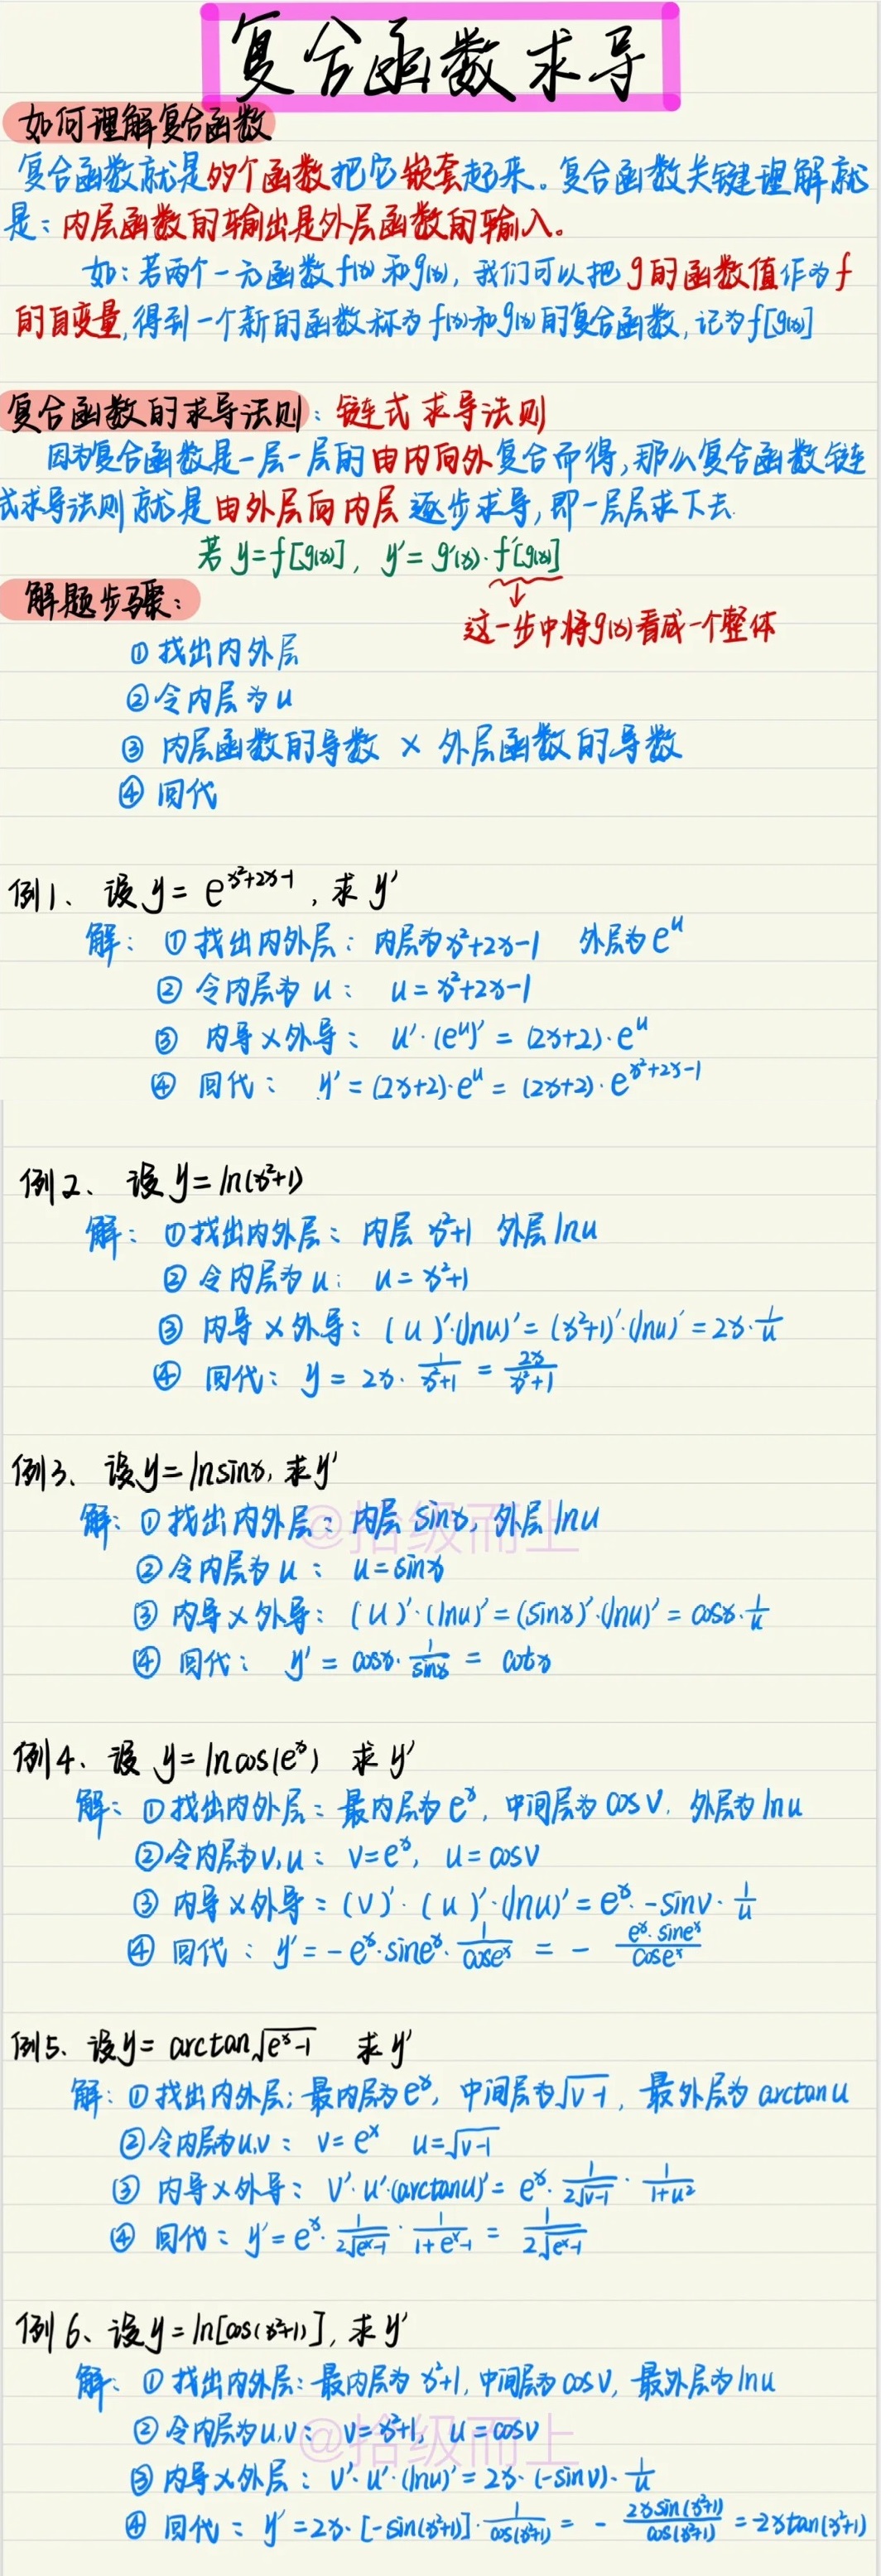 复合函数求导
如何理解复合函数
复合函数就是多个函数把它嵌套起来。复合函数关键理解就
是：内层函数的输出是外层函数的输入。
如：若两个一元函数f(x)和g(x)，我们可以把g的函数值作为f
的自变量,得到一个新的函数称为f(x)和g(x)的复合函数,记为f[g(x)]
复合函数的求导法则：链式求导法则
因为复合函数是一层一层的由内向外复合而得,那么复合函数链
式求导法则就是由外层向内层逐步求导,即一层层求下去.
若 y=f[g(x)], y'=g'(x)·f'[g(x)]
解题步骤：
这一步中将g(x)看成一个整体
① 找出内外层
② 令内层为u
③ 内层函数的导数 × 外层函数的导数
④ 回代
例1、设 y= e^{x²+2x-1}, 求 y'
解： ① 找出内外层： 内层为x²+2x-1 外层为e^u
② 令内层为 u： u=x²+2x-1
③ 内导×外导： u'·(e^u)' = (2x+2)·e^u
④ 回代： y'=(2x+2)·e^u = (2x+2)·e^{x²+2x-1}
例2、设 y=ln(x²+1)
解： ①找出内外层： 内层 x²+1 外层 lnu
② 令内层为u： u=x²+1
③ 内导×外导： (u)'·(lnu)' = (x²+1)'·(lnu)' = 2x·1/u
④ 回代： y = 2x·1/(x²+1) = 2x/(x²+1)
例3、设y=lnsinx, 求y'
解: ① 找出内外层： 内层 sinx, 外层 lnu
@拾级而上
②令内层为u ： u=sinx
③ 内导×外导： (u)'·(lnu)' = (sinx)'·(lnu)' = cosx·1/u
④ 回代： y' = cosx·1/sinx = cotx
例4、设 y=lncos(e^x) 求 y'
解： ① 找出内外层： 最内层为 e^x, 中间层为 cosv, 外层为 lnu
②令内层为v,u： v=e^x, u=cosv
③ 内导×外导：(v)'·(u)'·(lnu)' = e^x·-sinv·1/u
④ 回代 ： y'=-e^x·sine^x·1/cose^x = - e^x·sine^x/cose^x
例5、设y= arctan√(e^x-1) 求 y'
解: ① 找出内外层; 最内层为e^x, 中间层为√(v-1), 最外层为 arctanu
②令内层为u,v： v=e^x u=√(v-1)
③ 内导×外导： v'·u'·(arctanu)' = e^x·1/(2√(v-1))·1/(1+u²)
④ 回代： y'=e^x·1/(2√(e^x-1))·1/(1+e^x-1) = 1/(2√(e^x-1))
例6、设y=ln[cos(x²+1)], 求y'
解: ① 找出内外层：最内层为 x²+1, 中间层为 cosv, 最外层为lnu
② 令内层为u,v： v=x²+1, u=cosv
@拾级而上
③ 内导×外层： v'·u'·(lnu)' = 2x·(-sinv)·1/u
④ 回代 ： y'=2x·[-sin(x²+1)]·1/cos(x²+1) = - 2xsin(x²+1)/cos(x²+1) = -2xtan(x²+1)